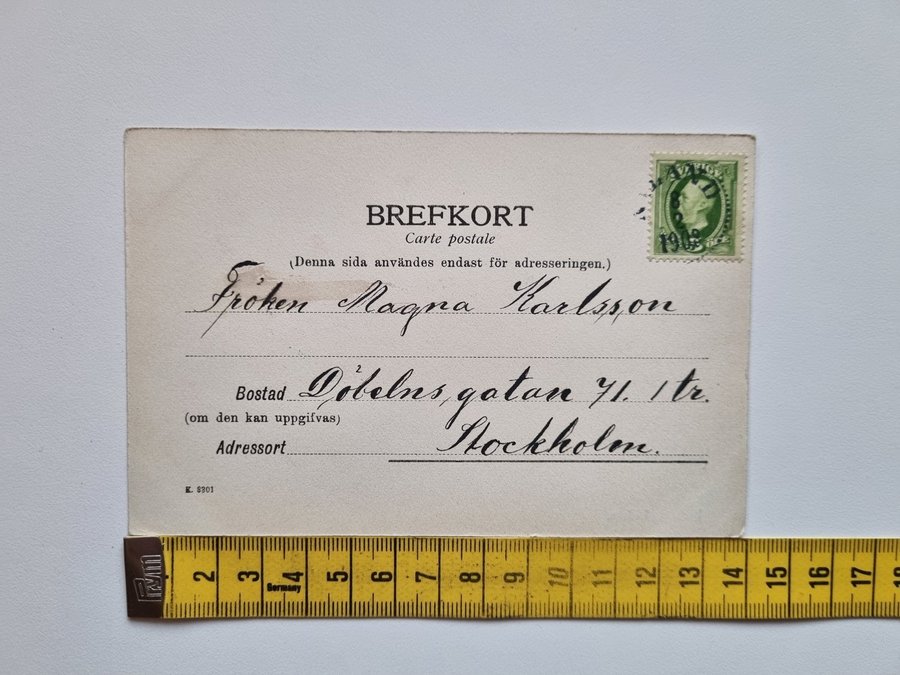 BREFKORT
Carte postale
(Denna sida användes endast för adresseringen.)
Fröken Magna Karlsson
Bostad Döbelns gatan 71. 1 tr.
(om den kan uppgifvas)
Adressort Stockholm.
K. 8301
2 3 4 5 6 7 8 9 10 11 12 13 14 15 16 17 18
Germany